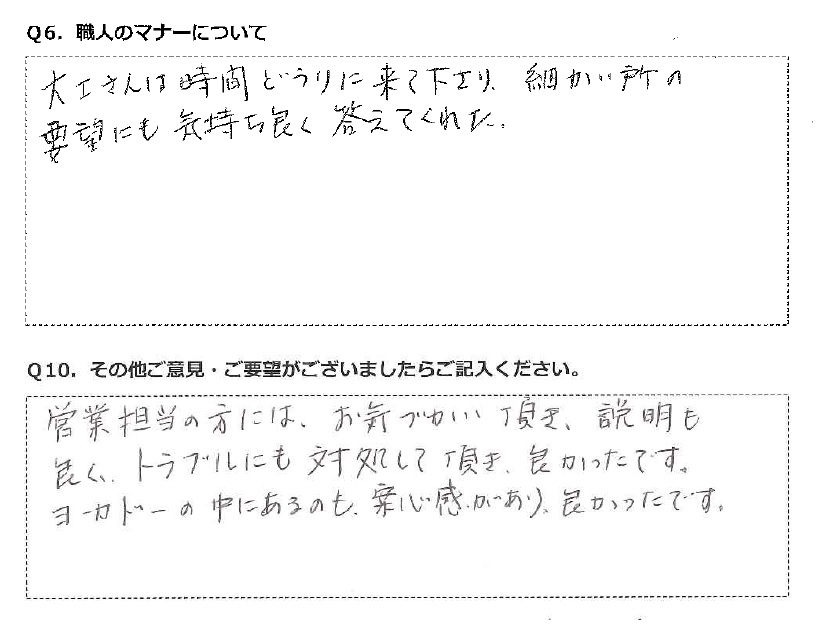 Q6. 職人のマナーについて
大工さんは時間どうりに来て下さり、細かい所の
要望にも気持ち良く答えてくれた。
Q10. その他ご意見・ご要望がございましたらご記入ください。
営業担当の方には、お気づかい頂き、説明も
良く、トラブルにも対処して頂き、良かったです。
ヨーカドーの中にあるのも、案心感があり、良かったです。